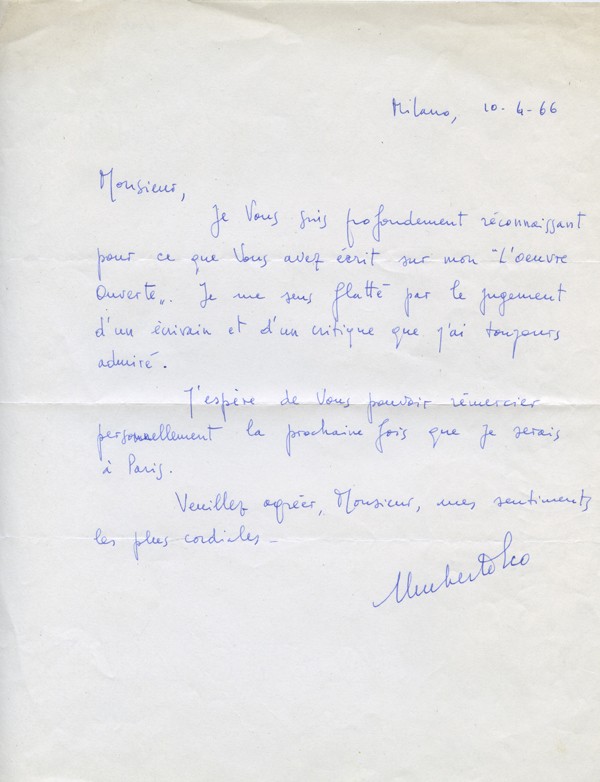 Milano, 10-4-66
Monsieur,
Je Vous suis profondement réconnaissant
pour ce que Vous avez écrit sur mon "L'oeuvre
Ouverte„. Je me sens flatté par le jugement
d'un écrivain et d'un critique que j'ai toujours
admiré.
J'espère de Vous pouvoir rémercier
personnellement la prochaine fois que je serais
à Paris.
Veuillez agréer, Monsieur, mes sentiments
les plus cordiales -
Umberto Eco